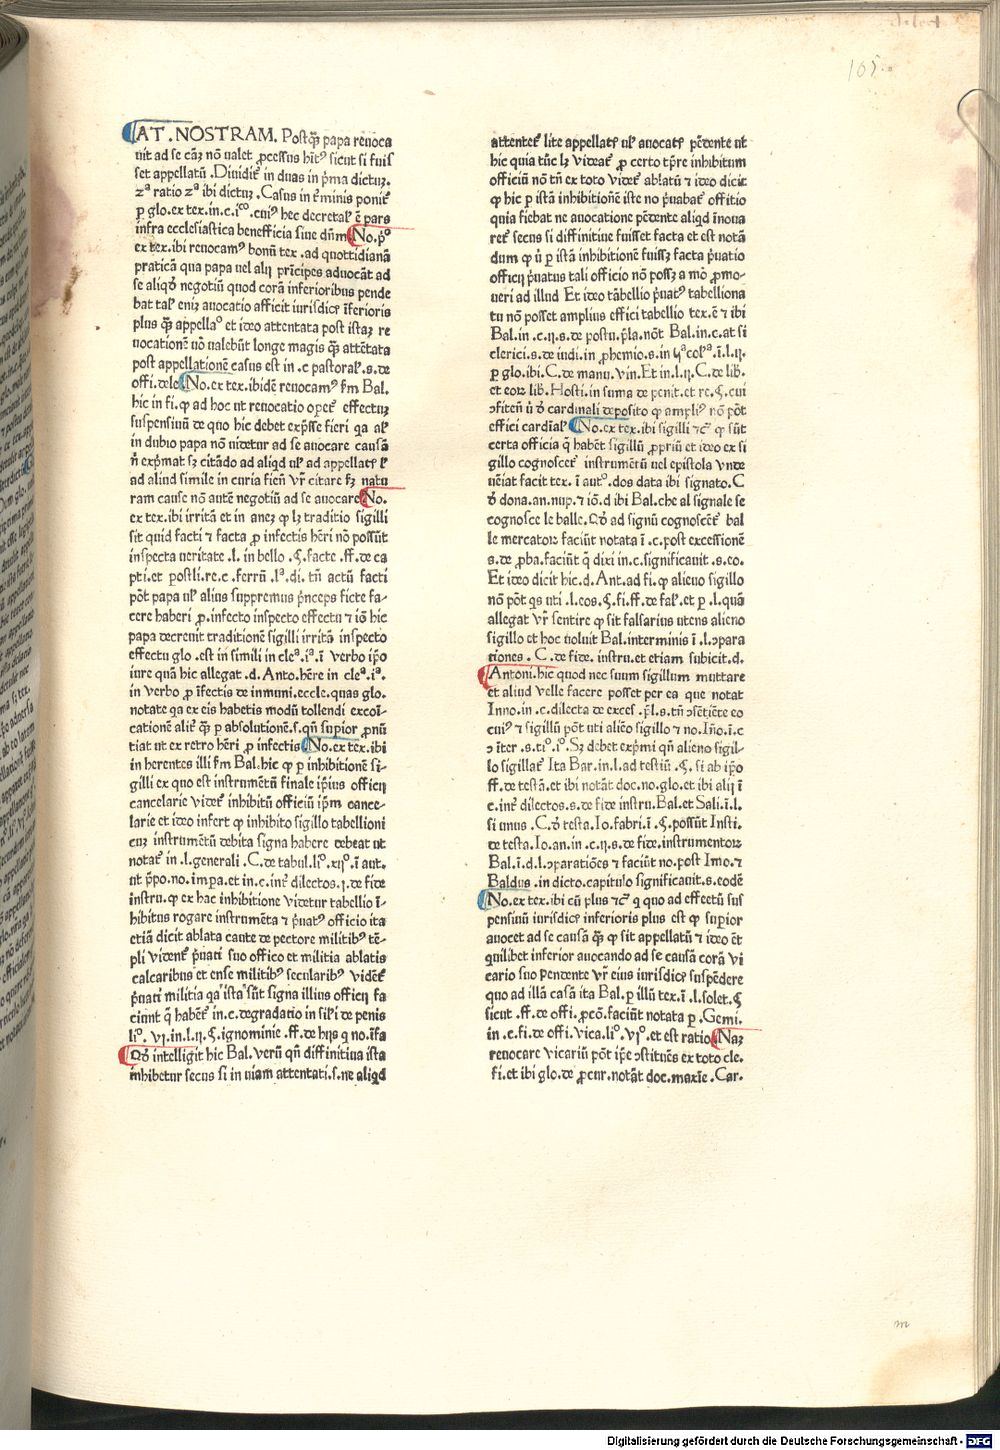 105.
AT .NOSTRAM. Postq̃ papa reuoca
uit ad se cãʒ nõ ualet ꝓcessus hĩt⁹ sicut si fuis
set appellatũ .Diuidit̃ in duas in p̃ma dictuʒ.
zᵃ ratio zᵃ ibi dictuʒ .Casus in t̃minis ponit̃
ꝑ glo.ex tex.in.c.iᶜᵒ.cui⁹ hec decretal̃ ẽ pars
infra ecclesiastica benefficia siue dñm No.p̃ᵒ
ex tex.ibi reuocam⁹ bonũ tex .ad quottidianã
praticã qua papa uel alij prĩcipes aduocãt ad
se aliqđ negotiũ quod corã inferioribus pende
bat tal̃ eniʒ auocatio afficit iurisdictõʒ ĩferioris
plus q̃ꝫ appellaᵒ et iđeo attentata post istaʒ re
uocationẽ nõ ualebũt longe magis q̃ꝫ attẽtata
post appellationẽ casus est in .c pastoral̃ .s.de
offi.dele No.ex tex.ibidẽ reuocam⁹ fm Bal.
hic in fi.ꝙ ad hoc ut reuocatio opet̃ effectuʒ
suspensiuũ de quo hic debet exp̃sse fieri qa al̃
in dubio papa nõ uidetur ad se auocare causã
ñ exp̃mat sʒ citãdo ad aliqđ ul̃ ad appellat̃ ł
ad aliud simile in curia fieñ vr̃ citare sʒ natu
ram cause nõ autẽ negotiũ ad se auocare No.
ex tex.ibi irritã et in aneʒ ꝙ lʒ traditio sigilli
sit quid facti ⁊ facta ꝓ infectis hẽri nõ possũt
inspecta ueritate .l. in bello .§.facte .ff.de ca
pti.et postli.re.c .ferrũ .lᵃ.di. tñ actũ facti
põt papa ul̃ alius suppremus p̃nceps ficte fa-
cere haberi ꝓ.infecto inspecto effectu ⁊ iđõ hic
papa decreuit traditionẽ sigilli irritã inspecto
effectu glo .est in simili in cleᵃ.iᵃ.ĩ verbo ip̃o
iure quã hic allegat .d. Anto.hẽre in cleᵃ.iᵃ.
in verbo ꝓ ĩfectis de inmuni.eccle.quas glo.
notate qa ex eis habetis modũ tollendi excoĩ-
cationẽ alit̃ q̃ꝫ ꝑ absolutionẽ.s.qñ supior ꝓnũ
tiat ut ex retro hẽri ꝓ infectis No.ex tex.ibi
in herentes illi fm Bal.hic ꝙ ꝑ inhibitionẽ si-
gilli ex quo est instrumentũ finale ip̃ius officij
cancelarie videt̃ inhibitũ officiũ ip̃m cance-
larie et iđeo infert ꝙ inhibito sigillo tabellioni
cuʒ instrumẽtũ debita signa habere debeat ut
notat̃ in .l.generali .C.de tabul.liᵒ.xijᵒ.ĩ aut.
ut p̃po.no.impa.et in.c.int̃ dilectos.ȷ.de fide
instru.ꝙ ex hac inhibitione videtur tabellio ĩ-
hibitus rogare instrumẽta ⁊ p̃uat⁹ officio ita
etiã dicit ablata cante de pectore militib⁹ tẽ-
pli vident̃ p̃uati suo offico et militia ablatis
calcaribus et ense militib⁹ secularib⁹ vidẽt̃
p̃uati militia qaʼ ista sũt signa illius officij fa
ciunt q̃ habet̃ in.c.degradatio in fil̃i de penis
liᵒ. vȷ.in.l.ij.§.ignominie .ff.de hijs q no.ĩfa
Qđ intelligit hic Bal.verũ qñ diffinitiua ista
inhibetur secus si in uiam attentati.s.ne aliqđ
attentet̃ lite appellat̃ ul̃ auocat̃ pẽdente ut
hic quia tũc lʒ videat̃ ꝓ certo tp̃re inhibitum
officiũ nõ tñ ex toto videt̃ ablatũ ⁊ iđeo dicit
ꝙ hic ꝑ istã inhibitionẽ iste no p̃uabat̃ offitio
quia fiebat ne auocatione pẽdente aliqđ ĩnoua
ret̃ secus si diffinitiue fuisset facta et est notã
dum ꝙ ũ ꝑ istã inhibitionẽ fuissʒ facta p̃uatio
officij p̃uatus tali officio nõ possʒ a mõ ꝓmo-
ueri ad illud Et iđeo tãbellio p̃uat⁹ tabelliona
tu nõ posset amplius effici tabellio tex.ẽ ⁊ ibi
Bal.in.c.ij.s.de postu.p̃la.nõt Bal.in.c.at si
clerici.s.de iudi.in ꝓhemio.s.in ijᵃcolᵃ.ĩ.l.ij.
ꝑ glo.ibi.C.de manu.vin.Et in.l.ij.C.de lib.
et eoꝝ lib. Hosti.in suma de penit.et re.§.cui
ↄfiteñ ũ đ cardinali deposito ꝙ ampli⁹ nõ põt
effici cardĩal̃ No.ex tex.ibi sigilli ⁊c̃ ꝙ sũt
certa officia q̃ habẽt sigillũ ꝓpriũ et iđeo ex si
gillo cognoscet̃ instrumẽtũ uel epistola vnde
uẽiat facit tex. ĩ autᵒ.dos data ibi signato.C
đ dona.an.nup.⁊ iõ.d ibi Bal.che al signale se
cognosce le balle.Qđ ad signũ cognoscẽt̃ bal
le mercatoꝝ faciũt notata ĩ .c.post excessionẽ
s.de ꝓba.faciũt q̃ dixi in.c.significauit .s.eo.
Et iđeo dicit hic.d.Ant.ad fi.ꝙ alieno sigillo
nõ põt qs uti .l.eos.§.fi.ff.de fal̃.et ꝑ .l.quã
allegat vr̃ sentire ꝙ sit falsarius utens alieno
sigillo et hoc uoluit Bal.interminis ĩ .l.ↄpara
tiones . C.de fide. instru.et etiam subicit.d.
Antoni.hic quod nec suum sigillum muttare
et aliud velle facere posset per ea que notat
Inno.in.c.dilecta de excef .p̃l.s.tñ ↄsẽtiẽte eo
cui⁹ ⁊ sigillũ põt uti aliẽo sigillo ⁊ no.Iñõ.ĩ.c
ↄ ĩter .s.tiᵒ.iᵒ.Sʒ debet exp̃mi qñ alieno sigil-
lo sigillat̃ Ita Bar.in.l.ad testiũ .§. si ab ip̃o
ff.de testã.et ibi notãt doc.no.glo.et ibi alij ĩ
c.int̃ dilectos.s.de fide instru.Bal.et Sali.ĩ.l.
si unus .C.đ testa.Io.fabri.ĩ .§.possũt Insti.
de testa.Io.an.in .c.ij.s.de fide.instrumentoꝝ
Bal.ĩ.d.l.ↄparatiões ⁊ faciũt no.post Imo.⁊
Baldus .in dicto.capitulo significauit.s.eodẽ
No.ex tex.ibi cũ plus ⁊c̃ q quo ad effectũ sus
pensiuũ iurisdictõʒ inferioris plus est ꝙ supior
auocet ad se causã q̃ꝫ ꝙ sit appellatũ ⁊ iđeo ẽt
quilibet inferior auocando ad se causã corã vi
cario suo pendente vr̃ eius iurisdictõʒ suspẽdere
quo ad illã casã ita Bal.ꝑ illũ tex.ĩ .l.solet.§
sicut .ff.de offi.ꝓcõ.faciũt notata ꝑ .Gemi.
in .c.fi.de offi.vica.liᵒ.vȷᵒ.et est ratio Naʒ
renocare vicariũ põt ip̃e ↄstituẽs ex toto cle.
fi.et ibi glo.de ꝓcur.notãt doc.maxĩe .Car.
m
Digitalisierung gefördert durch die Deutsche Forschungsgemeinschaft - DFG